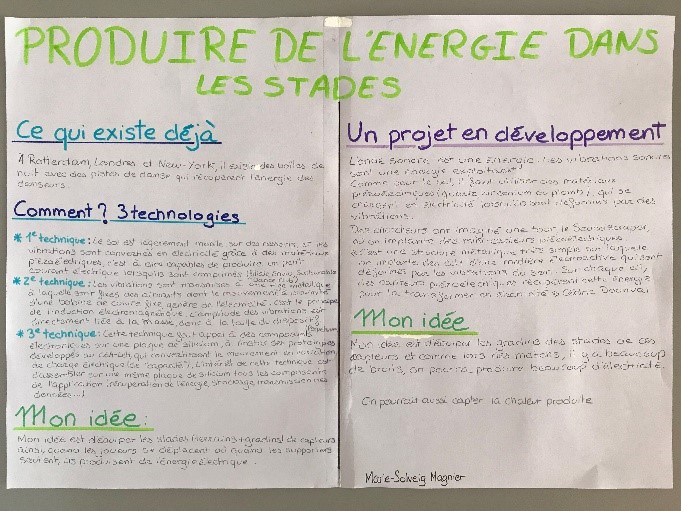 PRODUIRE DE L'ENERGIE DANS
LES STADES
Ce qui existe déjà
A Rotterdam, Londres et New-York, il existe des boites de
nuit avec des pistes de danse qui récupèrent l'énergie des
danseurs.
Comment? 3 technologies
* 1e technique: Le sol est légèrement monté sur des ressorts, et les
vibrations sont converties en électricité grâce à des matériaux
piézoélectriques c'est à dire capables de produire un petit
courant électrique lorsqu'ils sont comprimés
* 2e technique: Les vibrations sont transmises à une
à laquelle sont fixés des aimants dont le mouvement à proximité
d'une bobine de cuivre fixe génère de l'électricité. C'est le principe
de l'induction électromagnétique. L'amplitude des vibrations est
directement liée à la masse, donc à la taille du dispositif
* 3e technique: Cette technique fait appel à des composants
électroniques sur une plaque de silicium, à l'instar des prototypes
développés au
de charge électrique (de "capacité"). L'intérêt de cette technique est
d'assembler sur une même plaque de silicium tous les composants
de l'application (récupération de l'énergie, stockage, transmission des
données...)
Mon idée:
Mon idée est d'équiper les stades (terrains + gradins) de capteurs
ainsi, quand les joueurs se déplacent ou quand les supporters
sautent, ils produisent de l'énergie électrique.
Un projet en développement
L'onde sonore est une énergie. Les vibrations sonores
sont une énergie exploitable!
Comme pour le sol, il faut utiliser des matériaux
piézoélectriques (quartz, zirconium ou plomb), qui se
chargent en électricité lorsqu'ils sont déformés par des
vibrations.
Des chercheurs ont imaginé une tour le Soundscraper,
où on implante des
c'est une structure métallique très simple sur laquelle
on implante des cils d'une matière électroactive qui sont
déformés par les vibrations du son. Sur chaque cil,
des capteurs piézoélectriques récupèrent cette énergie
pour la transformer en
Mon idée
Mon idée est d'équiper les gradins des stades de ces
capteurs et comme lors des matchs, il y a beaucoup
de bruits, on pourra produire beaucoup d'électricité.
On pourrait aussi capter la chaleur produite
Marie-Solveig Magnier